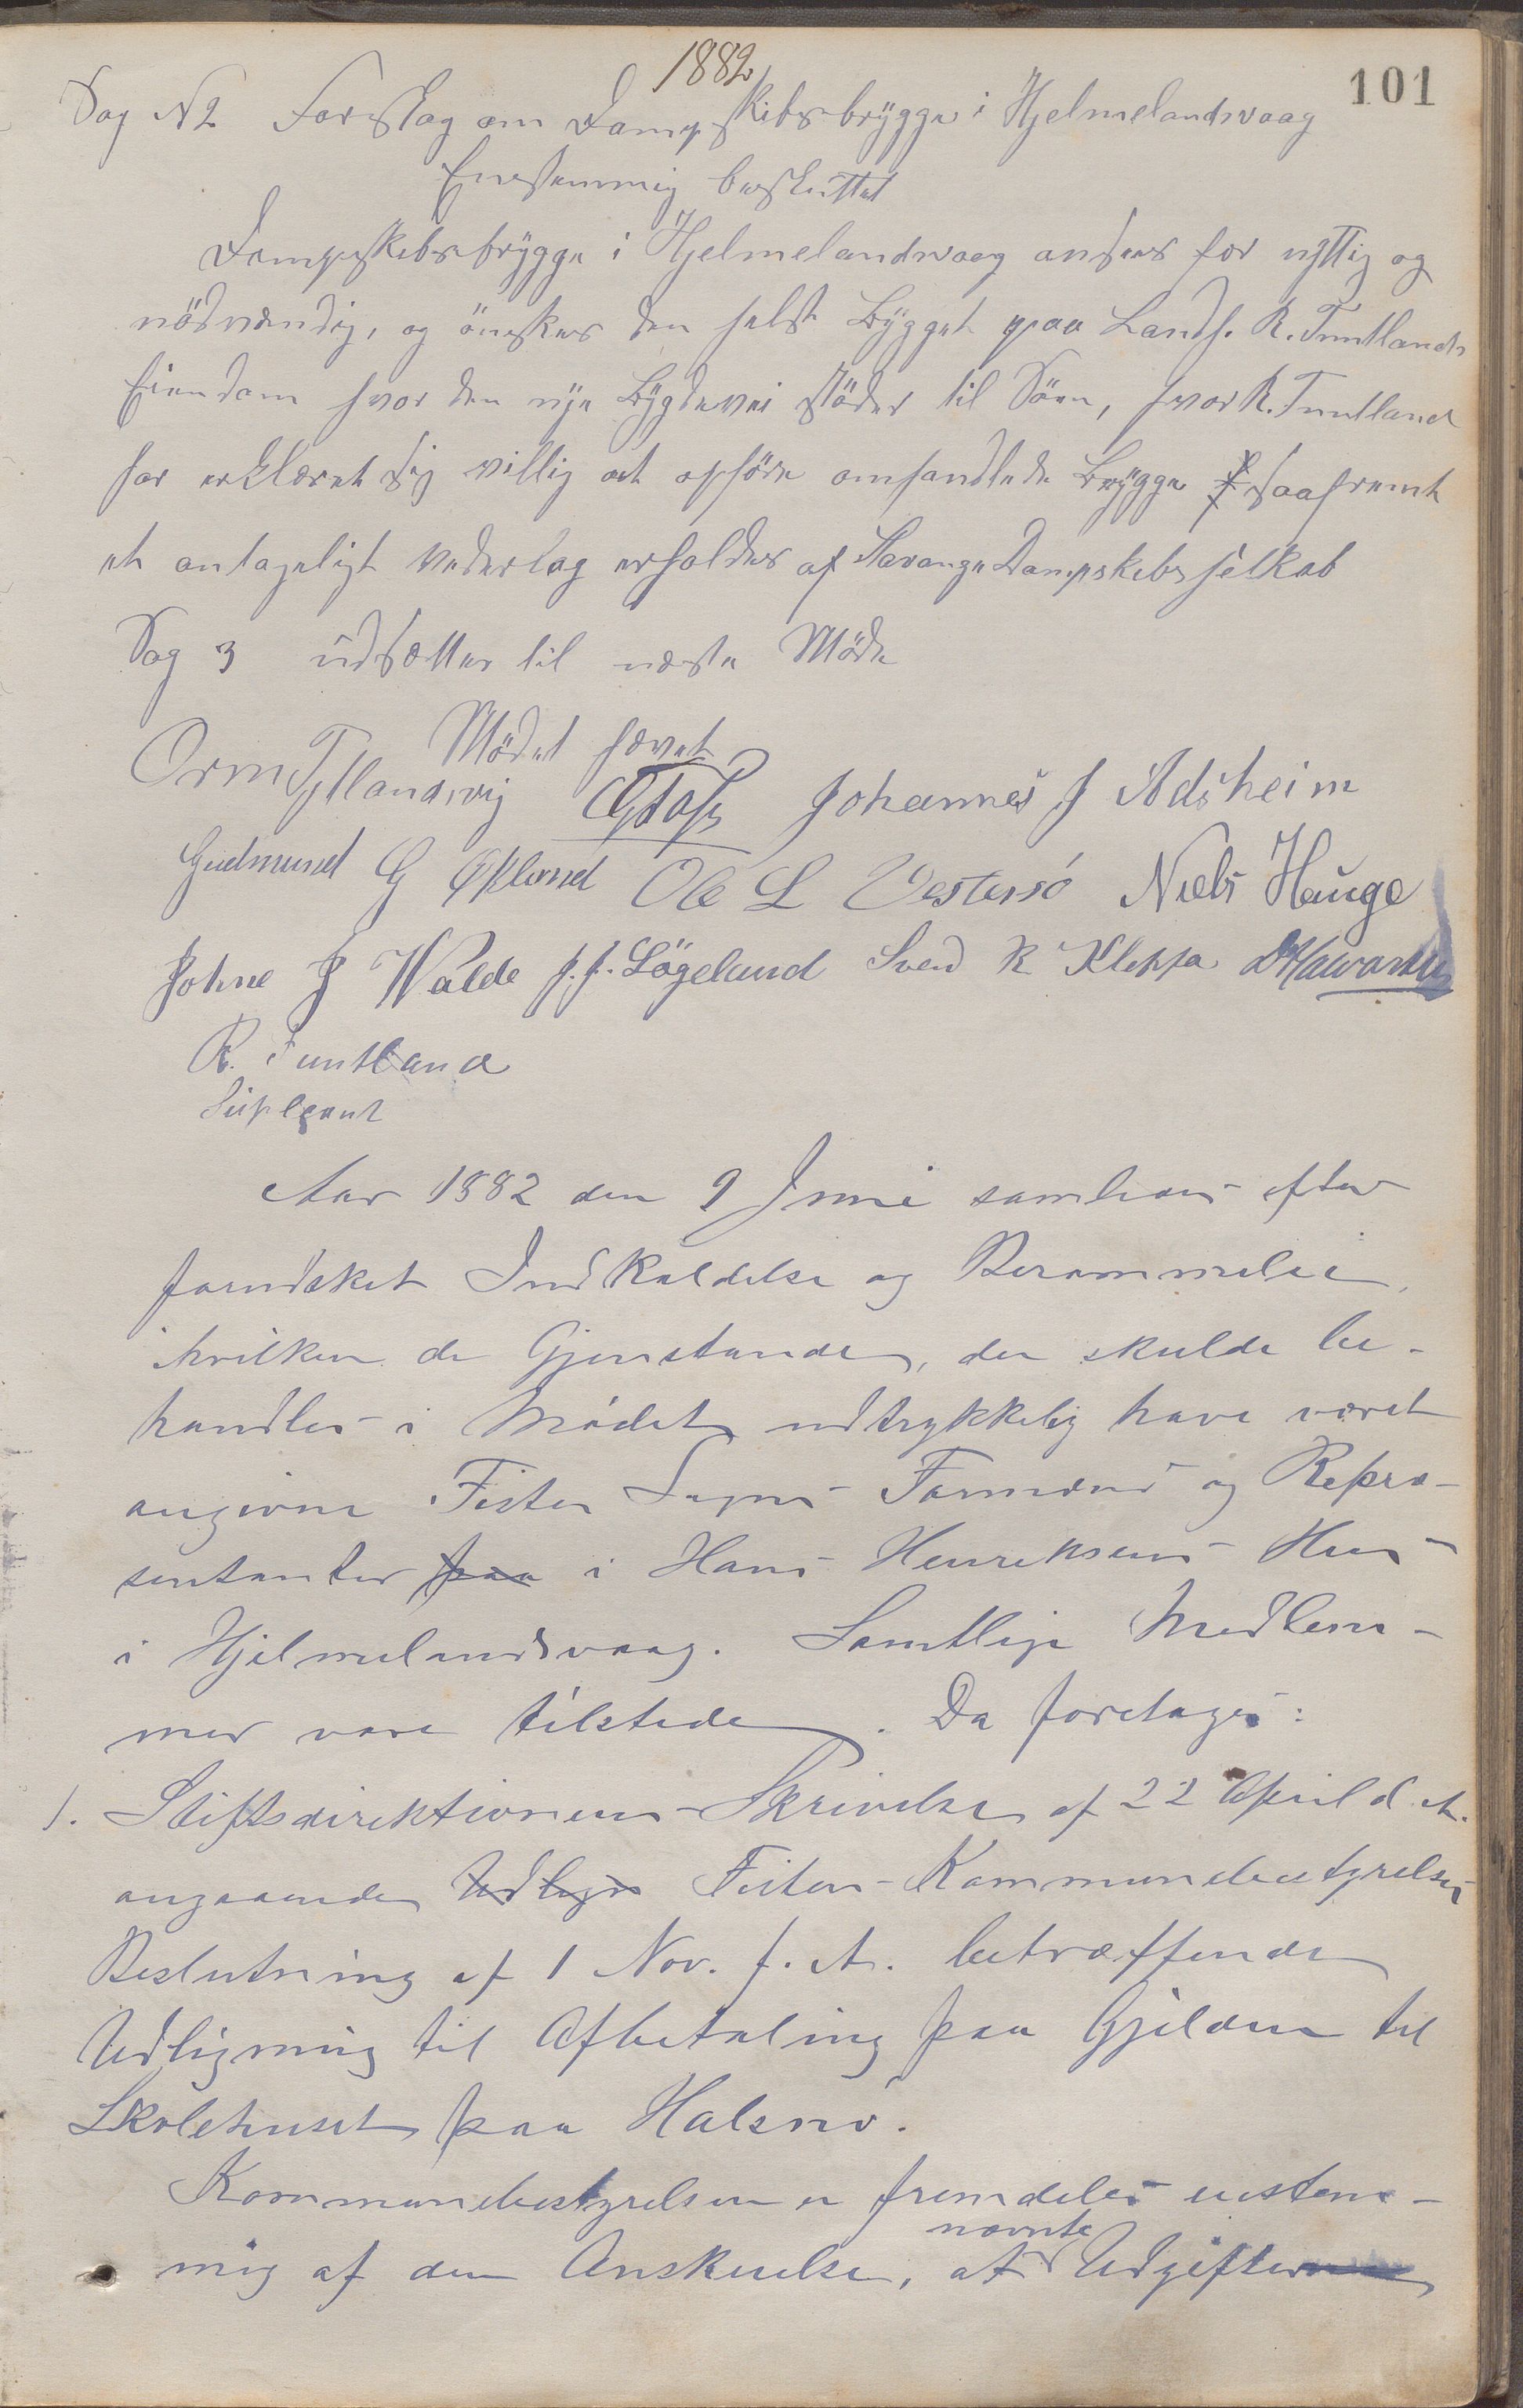 1882
101
Sag N 2 Forslag om Dampskibsbrygge i Hjelmelandsvaag
Enstemmig besluttet
Dampskibsbrygge i Hjelmelandsvaag ansees for nyttig og
nödvændig, og önskes den helst bygget paa Landh. R. Tuntlands
Eiendom hvor den nye Bygdevei stöder til Söen, hvor R. Tuntland
har erklæret sig villig at opföre omhandlede Brygge saafremt
et antageligt Vederlag erholdes af Stavanger Dampskibsselkab
Sag 3 udsættes til næste Möde
Mödet hævet
Orm Tytlandsvig Johannes J Adsheim
Gudmund G Økland Ole L Vestersö Niels Hauge
Johne J Walde J. J. Lögeland Svend K Kleppa
R. Tuntland
Supleant
Aar 1882 den 9 Juni samledes efter
forudsket Indkaldelse og Berammelse,
i hvilken de Gjenstande, der skulde be-
handles i Mødet udtrykkelig have været
angivne Fister Sogns Formænd og Repræ-
sentanter paa i Hans Henriksens Hus
i Hjelmelandsvaag. Samtlige Medlem-
mer vare tilstede. Da foretoges:
1. Stiftsdirektionens Skrivelse af 22 April d. A.
angaaende Udlign Fister Kommunebestyrelses
Beslutning af 1 Nov. f. A. betræffende
Udligning til Afbetaling paa Gjælden til
Skolehuset paa Halsnø.
Kommunebestyrelsen er fremdeles enstem-
nævnte
mig af den Anskuelse, at Udgifter